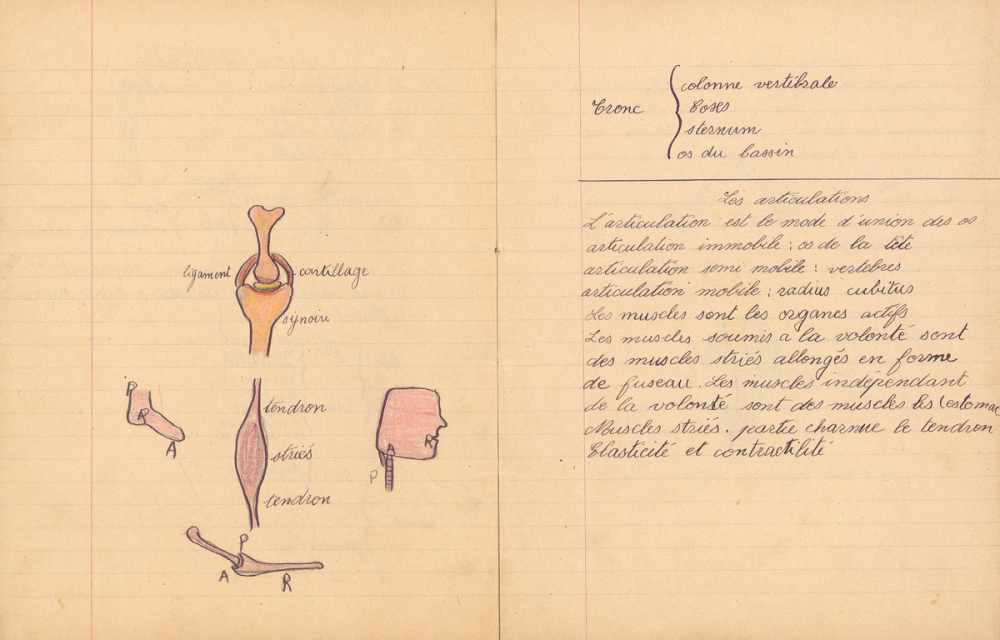 ligament
cartillage
synoire
P
R
A
tendron
striés
tendron
A
R
P
P
A
R
Tronc
colonne vertébrale
sternum
os du bassin
Les articulations
L'articulation est le mode d'union des os
articulation immobile : os de la tête
articulation semi mobile : vertebres
articulation mobile : radius cubitus
Les muscles sont les organes actifs
Les muscles soumis a la volonté sont
des muscles striés allongés en forme
de fuseau. Les muscles indépendant
de la volonté sont des muscles lis (estomac
Muscles striés. partie charnue le tendron
Elasticité et contractilité